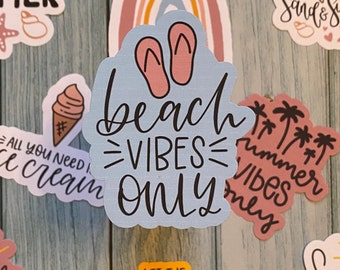 Sand & Su
beach
VIBES
only
ALL YOU NEED I
ice cream
summer
VIBES
only